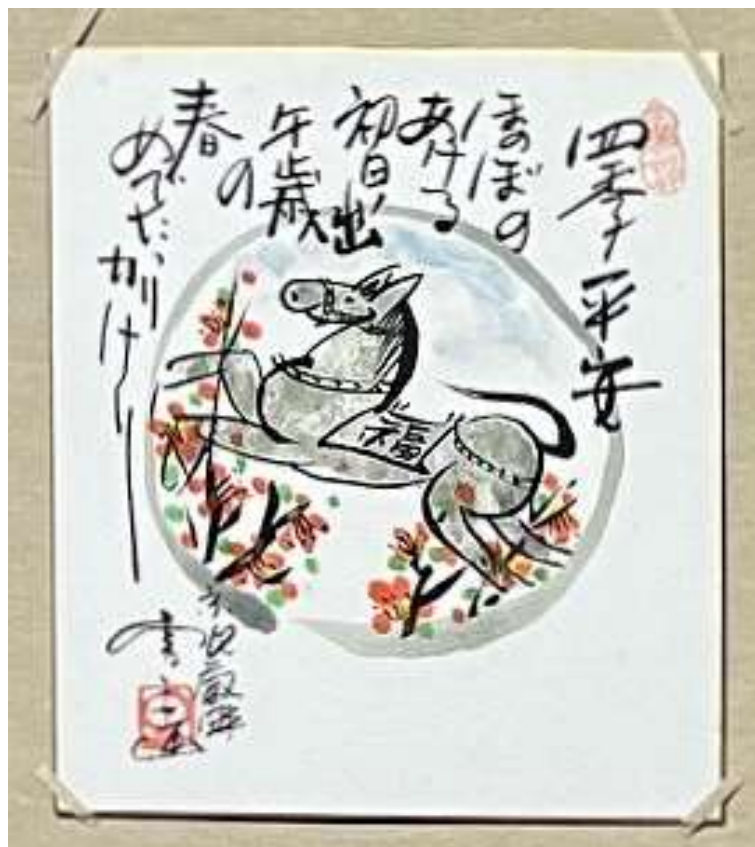 四季平安
ほのぼの
あける
初日出
午歳
の
春
めでたかりけり
福